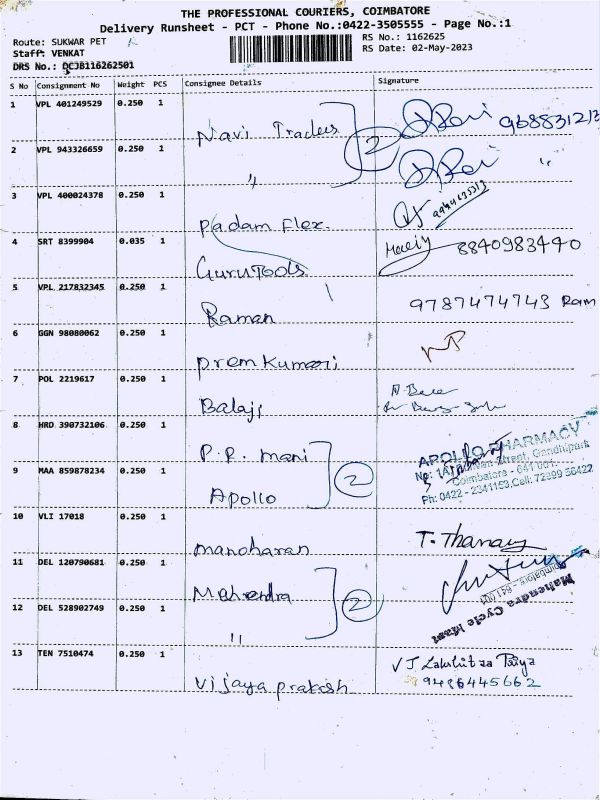 THE PROFESSIONAL COURIERS, COIMBATORE
Delivery Runsheet - PCT - Phone No.:0422-3505555 - Page No.:1
Route: SUKWAR PET
Staff: VENKAT
DRS No.: QCJB116262501
RS No.: 1162625
RS Date: 02-May-2023
S No Consignment No Weight PCS Consignee Details Signature
1 VPL 401249529 0.250 1 Navi Traders
2 VPL 943326659 0.250 1 "
2
"
3 VPL 400024378 0.250 1 Padam Flex.
4 SRT 8399904 0.035 1 Guru Tools 8840983440
5 VPL 217832345 0.250 1 Raman 9787474743 Ram
6 GGN 98080062 0.250 1 Prem Kumari
7 POL 2219617 0.250 1 Balaji
8 HRD 390732106 0.250 1 P.R. mani
9 MAA 859878234 0.250 1 Apollo
2
APOLLO PHARMACY
Street, Gandhipark
Coimbatore - 641 001.
Ph: 0422 - 2341153,Cell: 72999 56422
10 VLI 17018 0.250 1 manoharan T. Thanam
11 DEL 120790681 0.250 1 Mahendra
12 DEL 528902749 0.250 1 "
2
Mahendra Cycle Mart
13 TEN 7510474 0.250 1 Vijaya prakash
9486445662